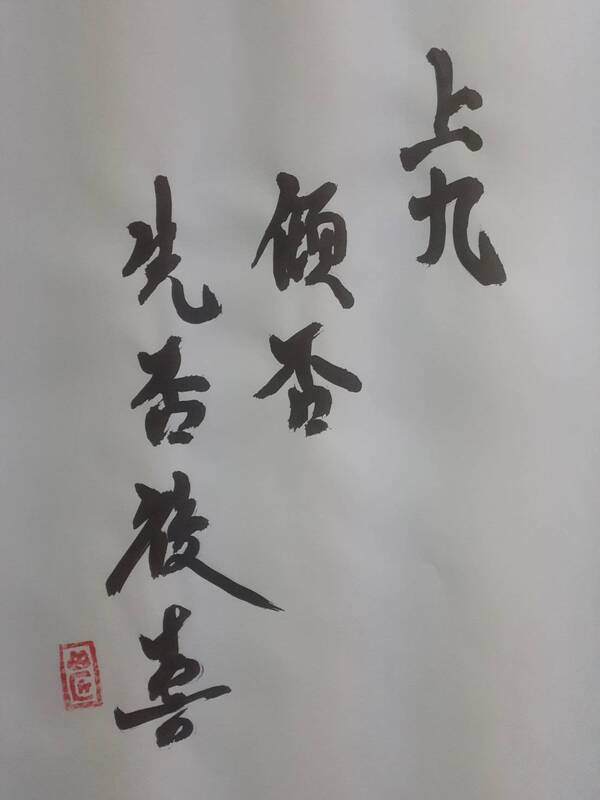 上九
傾否
先否後喜